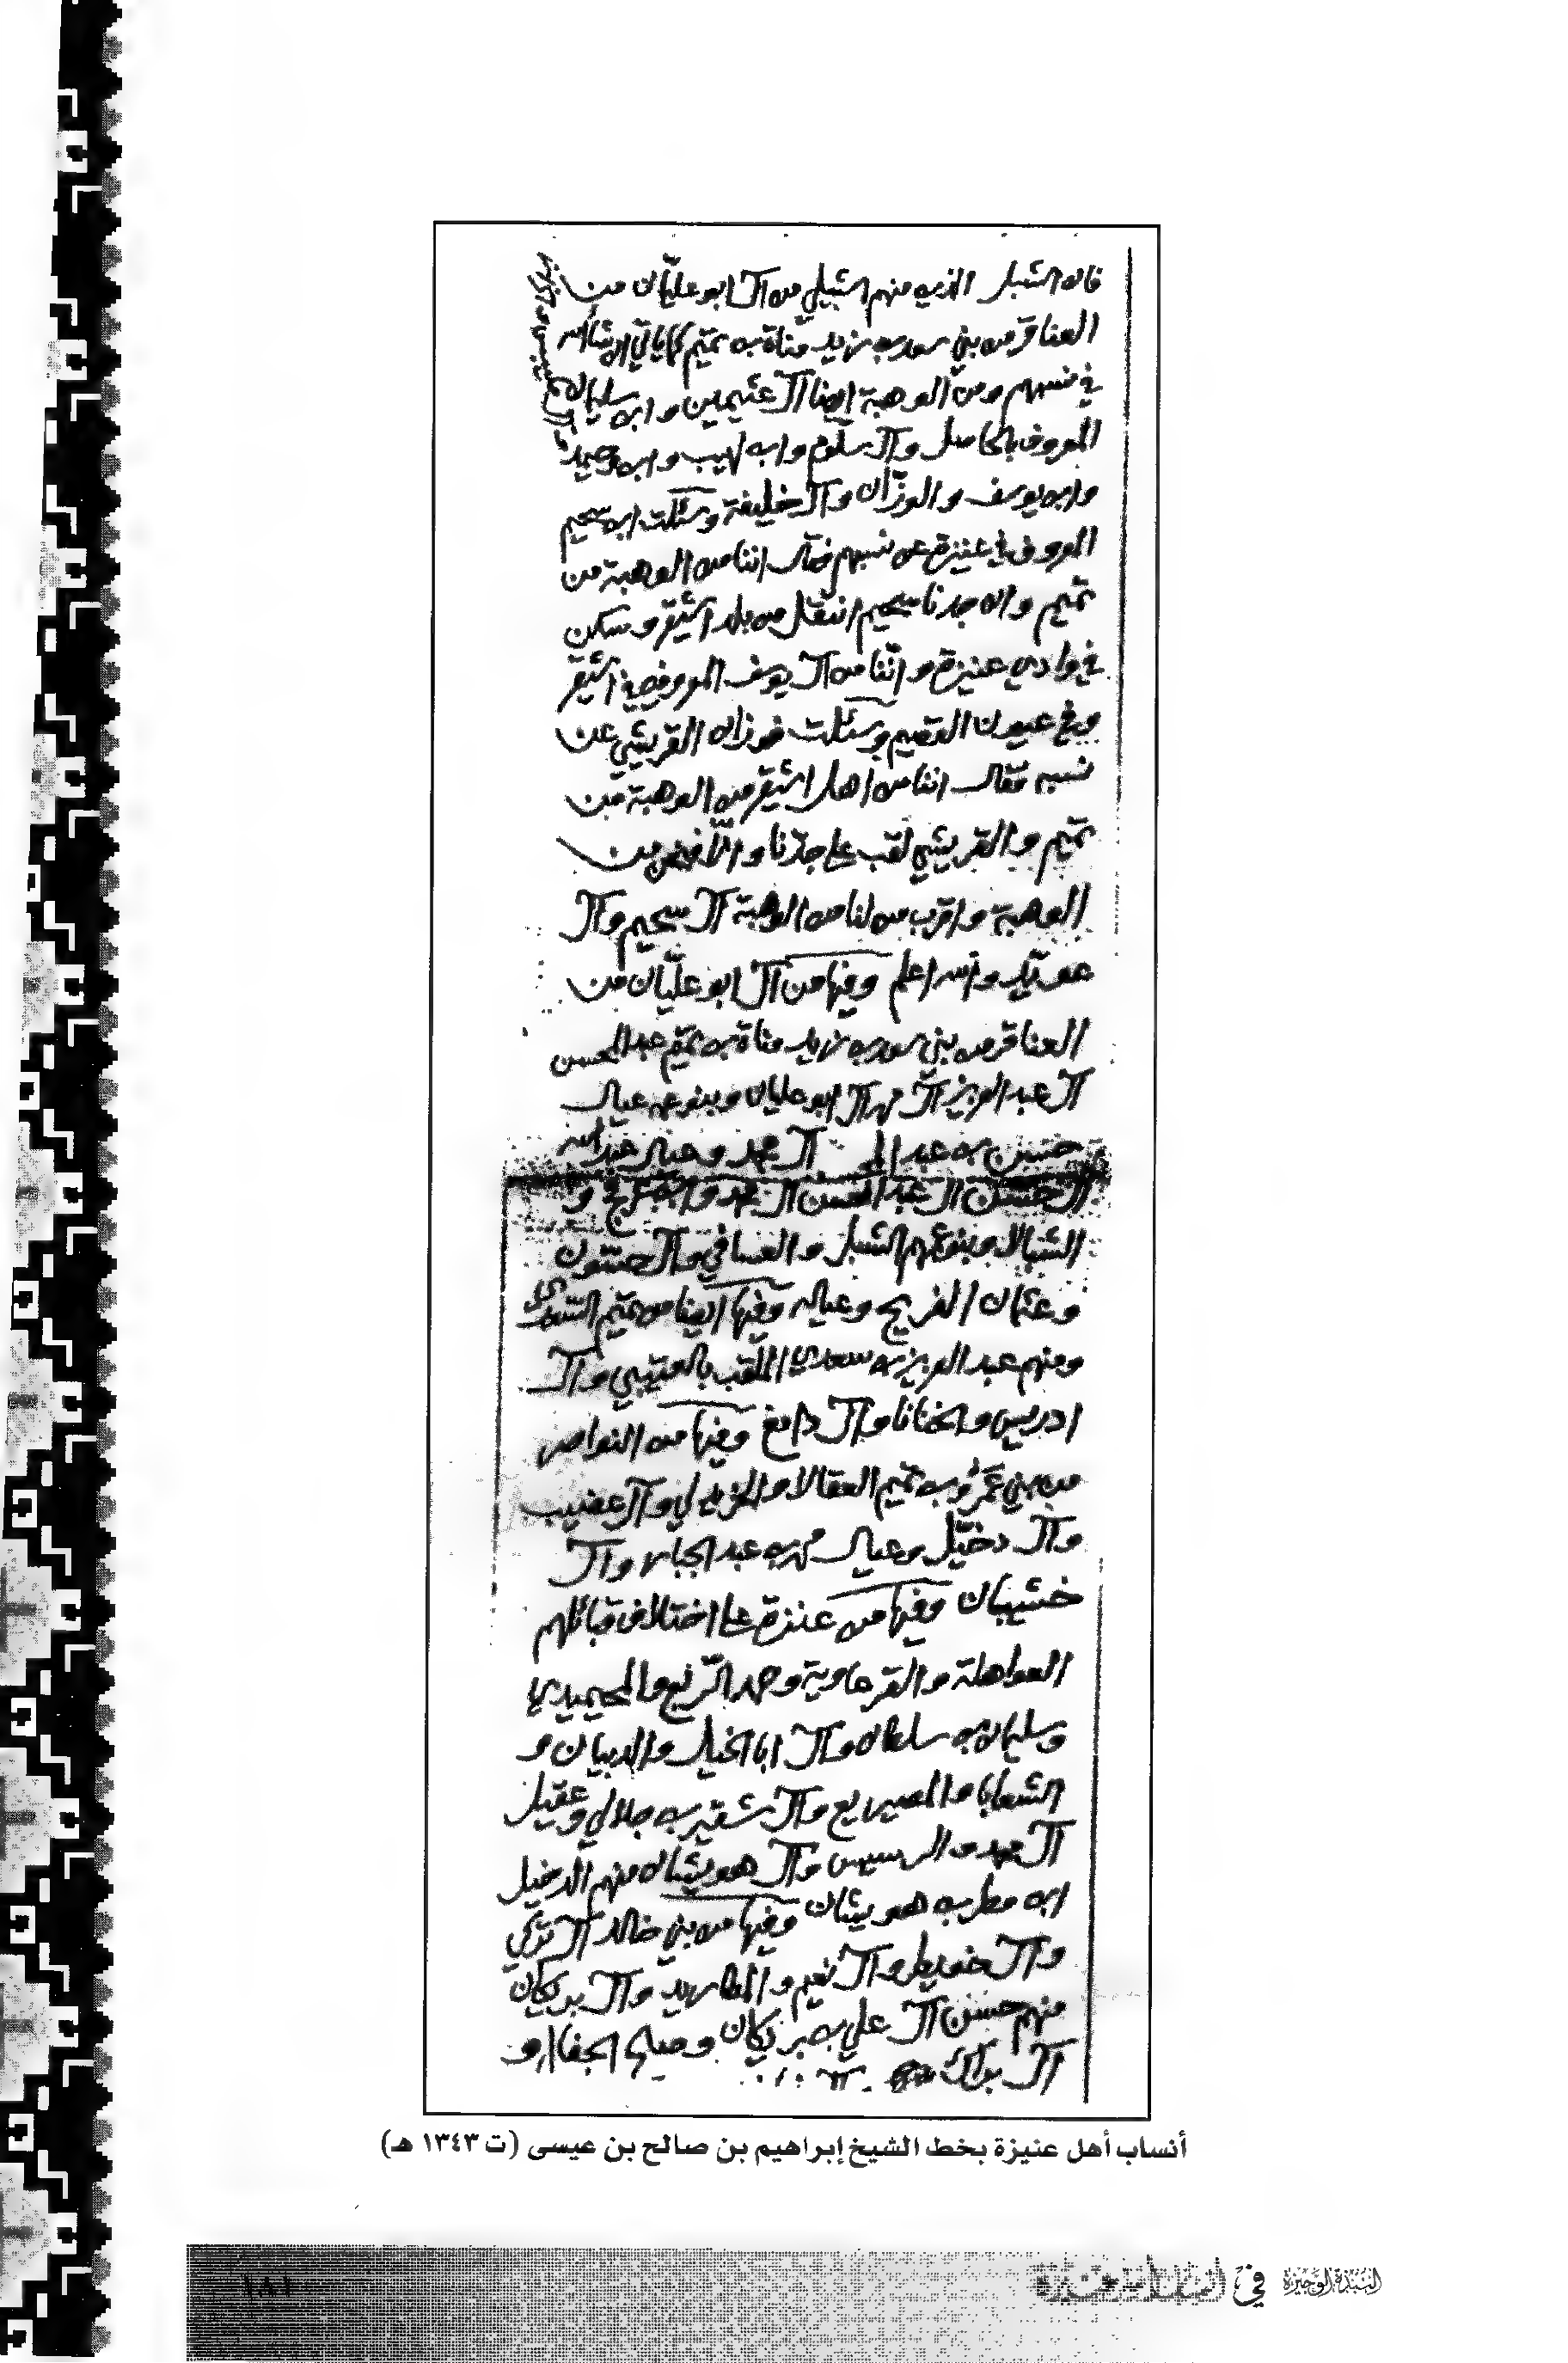 فان الشبل الذين منهم الشبيلي من آل ابو عليّان من
العناقر من بني سعد بن زيد مناة بن تميم كما ياتي ان شاء الله
في نسبهم ومن الوهبة ايضا آل عثيمين وابن سليمان
المعروف بالحاصل وآل سلوم وابن لهيب وابن وحيمد
وابن يوسف والوزّان وآل خليفة وسئلت ابن سحيم
المعروف في عنيزة عن نسبهم فقال اننا من الوهبة من
تميم وان جدنا سحيم انتقل من بلد اشيقر وسكن
في وادي عنيزة واننا من آل يوسف المعروفين في اشيقر
وفي عيون القصيم وسئلت فوزان القريشي عن
نسبه فقال اننا من اهل اشيقر من الوهبة من
تميم والقريشي لقب على جدّنا والّا فنحن من
الوهبة واقرب من لنا من الوهبة آل سحيم وآل
عويّد والله اعلم وفيها من آل ابو عليّان من
العناقر من بني سعد بن زيد مناة بن تميم عبد المحسن
آل عبد العزيز آل محمد آل ابو عليان وبنو عمه عيال
حسين بن عبد آل محمد وعيال عبد الله
آل حسين آل عبد المحسن آل محمد و
الشبالا وبنو عمهم الشبل والعسافي وآل حسّون
وعثمان الفريح وعياله وفيها ايضا من تميم
ومنهم عبد العزيز بن سعدي الملقب بالعتيبي وآل
ادريس والخنانا وآل دامغ وفيها من النواصر
من بني عمرو بن تميم العقالا والخريدلي وآل عضيب
وآل دخيّل وعيال محمد بن عبد الجبار وآل
خشيبان وفيها من عنزة على اختلاف قبائلهم
العواهلة والقرعاوية وحمد الربع والمحيميدي
وسليمان بن سلطان وآل ابا الخيل والدبيان و
الشعابا والصيريع وآل شقير بن جلالي وعقيل
آل محمد والرسيس وآل هويشان منهم الدخيل
ابن مطر بن هويشان وفيها من بني خالد آل تركي
وآل حنيطي وآل نعيم والمطاريد وآل بريكان
منهم حسن آل علي بن بريكان وصالح الجفالي و
آل براك
أنساب أهل عنيزة بخط الشيخ إبراهيم بن صالح بن عيسى (ت ١٣٤٣ هـ)
النبذة الوجيزة في أنساب أسر عنيزة
١٨١